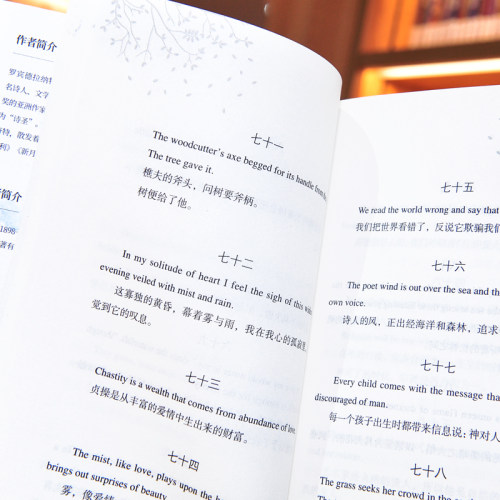 作者简介
罗宾德拉纳特
名诗人，文学
奖的亚洲作家
为“诗圣”。
特，散发着
利》《新月
简介
1898
著有
七十一
The woodcutter's axe begged for its handle from
The tree gave it.
樵夫的斧头，问树要斧柄。
树便给了他。
七十二
In my solitude of heart I feel the sigh of this
evening veiled with mist and rain.
这寡独的黄昏，幕着雾与雨，我在我心的孤寂里，
觉到它的叹息。
七十三
Chastity is a wealth that comes from abundance of love.
贞操是从丰富的爱情中生出来的财富。
七十四
The mist, like love, plays upon the
brings out surprises of beauty
雾，像爱情
七十五
We read the world wrong and say that
我们把世界看错了，反说它欺骗我们
七十六
The poet wind is out over the sea and the
own voice.
诗人的风，正出经海洋和森林，追求
七十七
Every child comes with the message that
discouraged of man.
每一个孩子出生时都带来信息说：神对人
七十八
The grass seeks her crowd in the
The